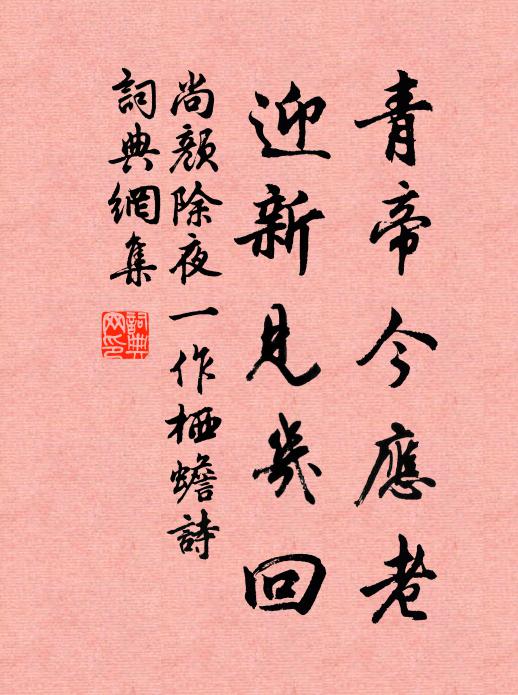 青帝今應老
迎新見幾回
尚顏除夜 一作栖蟾詩
詞典網集
詞典
网印